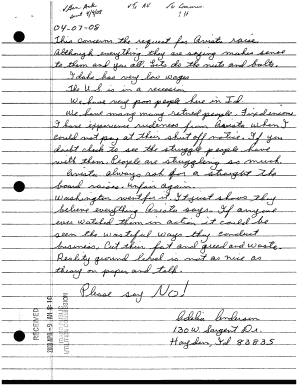 04-07-08
This concern the request for Avista raise.
Although everything they are saying makes sense
to them and you all. Lets do the nuts and bolts.
Idaho has very low wages
The U.S. is in a recession
We have very poor people here in Id.
We have many many retired people. Fixed income
I have experience rudeness from Avista when I
could not pay at their shutoff notice. If you
doubt check to see the struggle people have
with them. People are struggling so much.
Avista always ask for a straight the
board raises. Unfair again.
Washington went for it. It just shows they
believe everything Avista says. If anyone
ever watched them in action it could be
seen the wasteful ways they conduct
business. Cut their fat and greed and waste.
Reality ground level is not as nice as
theory on paper and talk.
Please say No!
Adelia Anderson
130 W. Sargent Dr.
Hayden, Id 83835
RECEIVED
UTILITIES COMMISSION